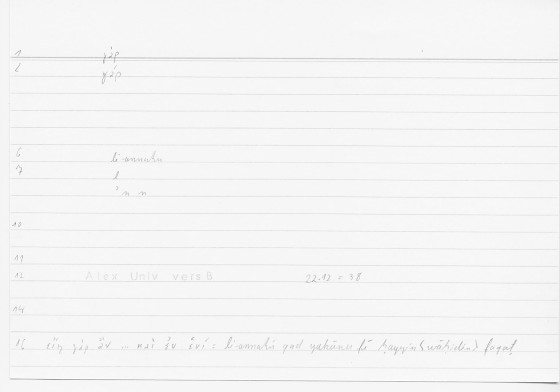 1 γάρ
2 γάρ
6 li-annahu
7 l
ʾ n n
10
11
12 Alex Univ vers 8 22.12 = 38
14
15 εἴη γὰρ ἂν καὶ ἐν ἑνί : li-annahū qad yakūnu fī faqaṭ